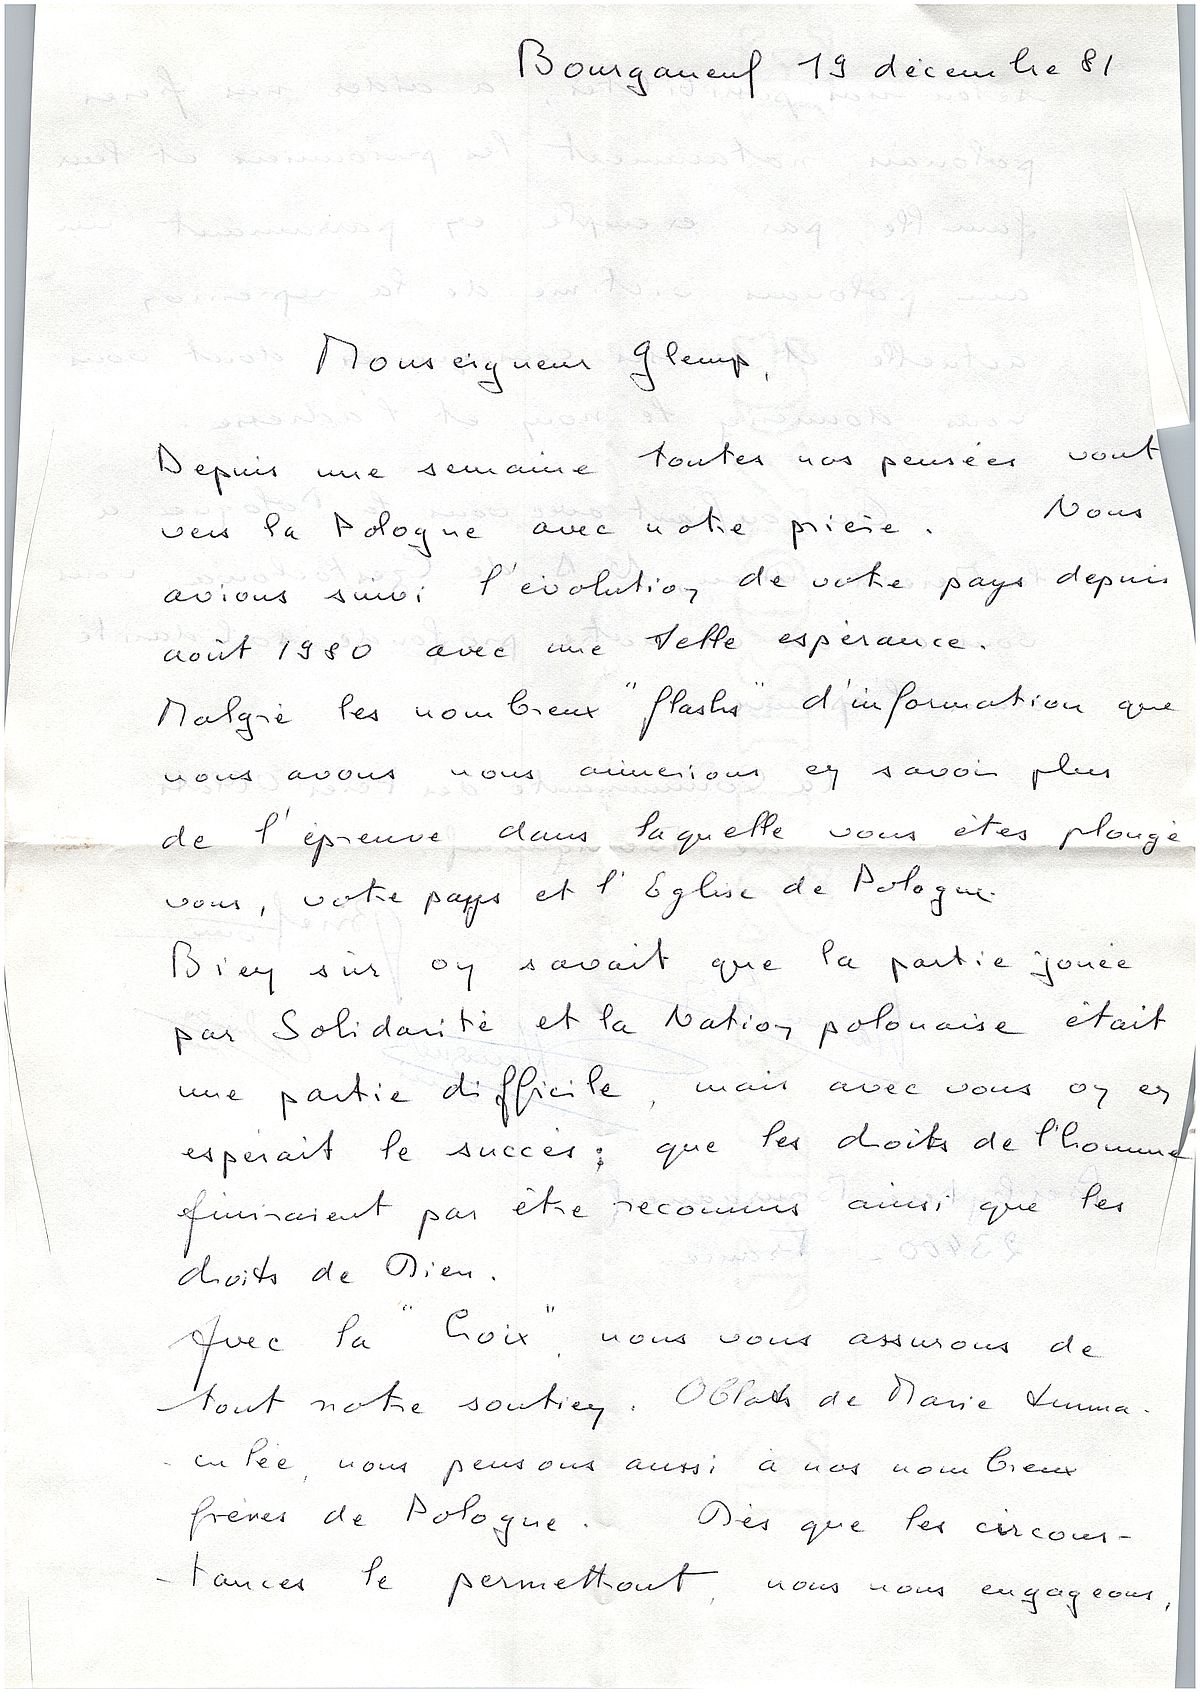 Bourganeuf 19 décembre 81
Monseigneur Glemp,
Depuis une semaine toutes nos pensées vont
vers la Pologne avec notre prière. Nous
avions suivi l'évolution de votre pays depuis
août 1980 avec une telle espérance.
Malgré les nombreux "flashs" d'information que
nous avons nous aimerions en savoir plus
de l'épreuve dans laquelle vous êtes plongé
vous, votre pays et l'Eglise de Pologne.
Bien sûr on savait que la partie jouée
par Solidarité et la Nation polonaise était
une partie difficile, mais avec vous on en
espérait le succès; que les droits de l'homme
finiraient par être reconnus ainsi que les
droits de Dieu.
Avec la "Croix", nous vous assurons de
tout notre soutien. Oblats de Marie Imma-
-culée, nous pensons aussi à nos nombreux
frères de Pologne. Dès que les circons-
-tances le permettront, nous nous engageons,